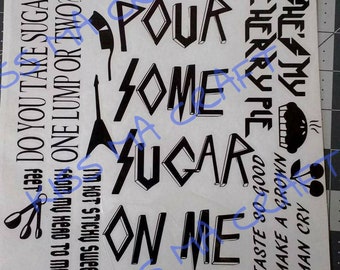 DO YOU TAKE SUGA
ONE LUMP OR TWO?
I'M HOT STICKY SWEE
FROM MY HEAD TO M
FEET
POUR
SOME
SUGAR
ON ME
MY
CHERRY PIE
TASTE SO GOOD
MAKE A GROWN
MAN CRY
KISS MA CRAFT